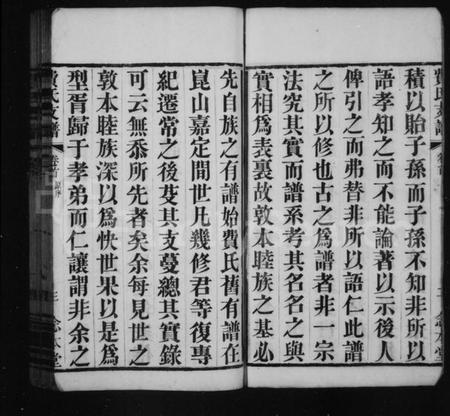 積以貽子孫而子孫不知非所以
語孝知之而不能論著以示後人
俾引之而弗替非所以語仁此譜
之所以修也古之為譜者非一宗
法究其實而譜系考其名名之與
實相為表裏故敦本睦族之基必
先自族之有譜始費氏舊有譜在
崑山嘉定間世凡幾修君等復專
紀遷常之後芟其支蔓總其實錄
可云無忝所先者矣余每見世之
敦本睦族深以為快世果以是為
型胥歸于孝弟而仁讓謂非余之
費氏支譜 卷首 三 念本堂